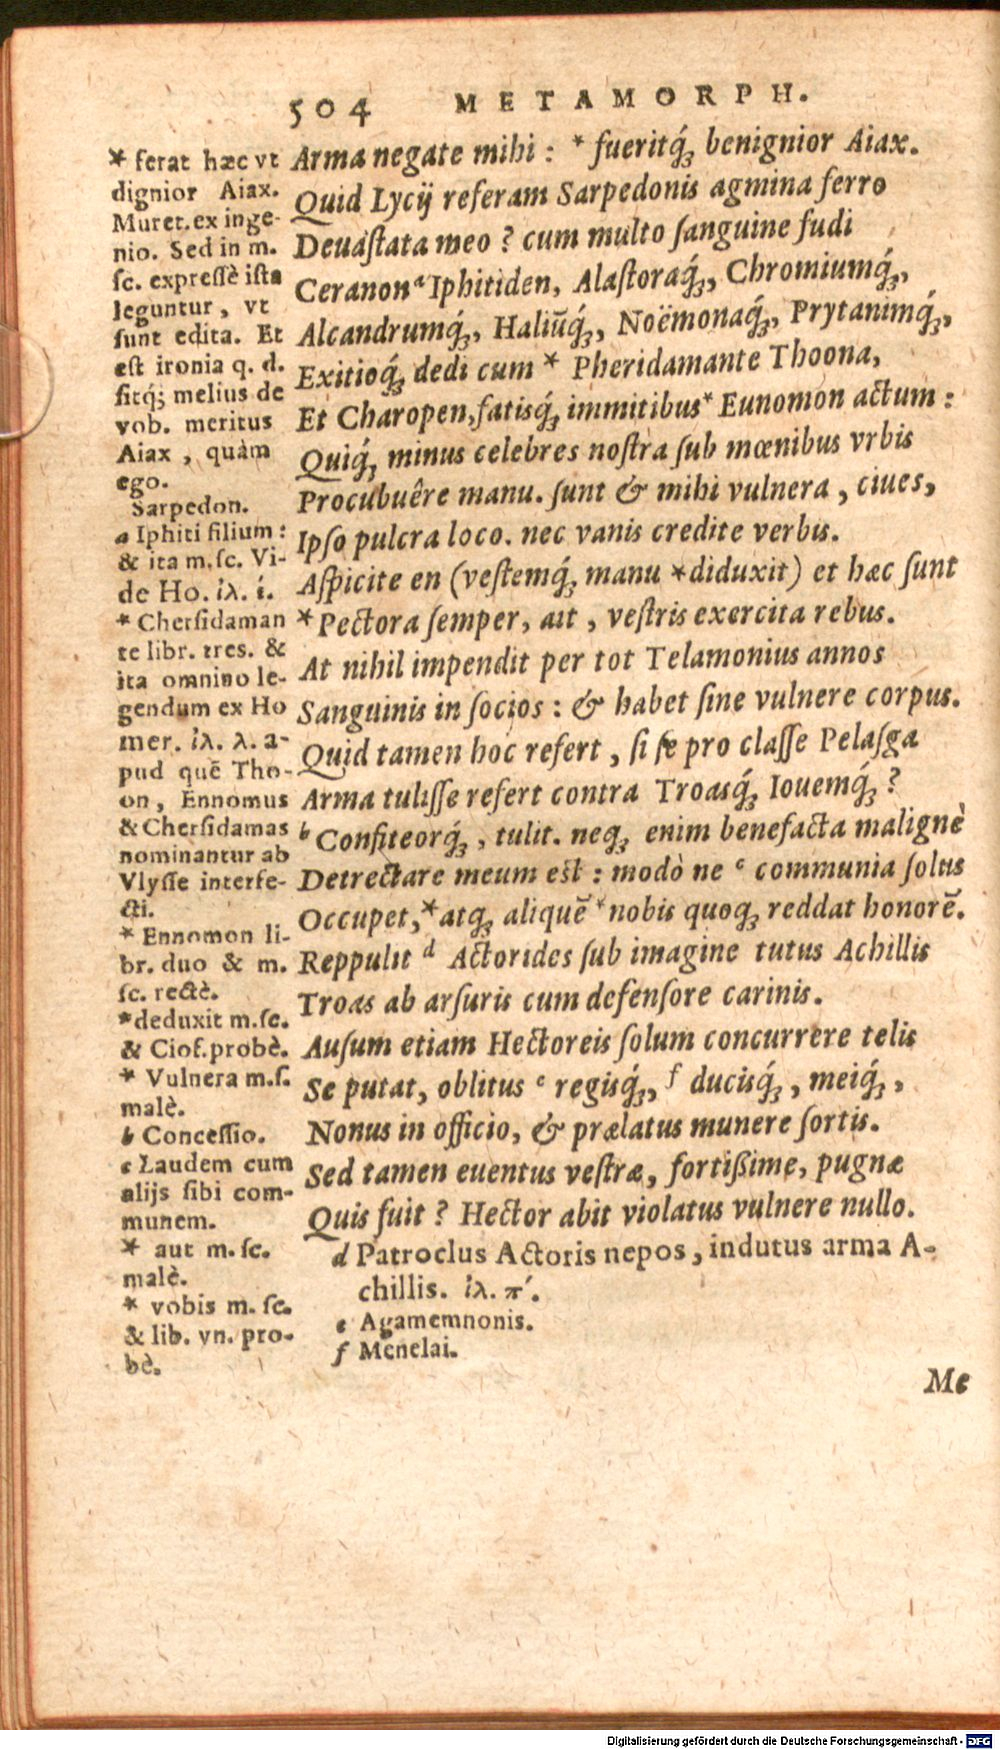 504 METAMORPH.
Arma negate mihi : * fueritq́; benignior Aiax.
Quid Lycij referam Sarpedonis agmina ferro
Deuaſtata meo ? cum multo ſanguine fudi
Ceranon a Iphitiden, Alaſtoraq́;, Chromiumq́;,
Alcandrumq́;, Haliūq́;, Noëmonaq́;, Prytanimq́;,
Exitioq́; dedi cum * Pheridamante Thoona,
Et Charopen, fatisq́; immitibus * Eunomon actum :
Quiq́; minus celebres noſtra ſub mœnibus vrbis
Procubuêre manu. ſunt & mihi vulnera , ciues,
Ipſo pulcra loco. nec vanis credite verbis.
Aſpicite en (veſtemq́; manu *diduxit) et hæc ſunt
*Pectora ſemper, ait , veſtris exercita rebus.
At nihil impendit per tot Telamonius annos
Sanguinis in ſocios : & habet ſine vulnere corpus.
Quid tamen hoc refert , ſi ſe pro claſſe Pelaſga
Arma tuliſſe refert contra Troasq́; Iouemq́; ?
b Confiteorq́; , tulit. neq; enim benefacta malignè
Detrectare meum eſt : modò ne c communia ſolus
Occupet, *atq; aliquē *nobis quoq; reddat honorē.
Reppulit d Actorides ſub imagine tutus Achillis
Troas ab arſuris cum defenſore carinis.
Auſum etiam Hectoreis ſolum concurrere telis
Se putat, oblitus e regisq́;, f ducisq́; , meiq́; ,
Nonus in officio, & prælatus munere ſortis.
Sed tamen euentus veſtræ, fortißime, pugnæ
Quis fuit ? Hector abit violatus vulnere nullo.
* ferat hæc vt
dignior Aiax.
Muret. ex inge-
nio. Sed in m.
ſc. expreſsè iſta
leguntur , vt
ſunt edita. Et
eſt ironia q. d.
ſitq́; melius de
vob. meritus
Aiax , quàm
ego.
Sarpedon.
a Iphiti filium :
& ita m.ſc. Vi-
de Ho. ἰλ. ἐ.
* Cherſidaman
te libr. tres. &
ita omnino le-
gendum ex Ho
mer. ἰλ. λ. a-
pud quē Tho-
on , Ennomus
& Cherſidamas
nominantur ab
Vlyſſe interfe-
cti.
* Ennomon li-
br. duo & m.
ſc. rectè.
*deduxit m.ſc.
& Ciof. probè.
* Vulnera m.ſ.
malè.
b Conceſſio.
c Laudem cum
alijs ſibi com-
munem.
* aut m. ſc.
malè.
* vobis m. ſc.
& lib. vn. pro-
bè.
d Patroclus Actoris nepos , indutus arma A-
chillis. ἰλ. π΄.
e Agamemnonis.
f Menelai.
Me
Digitalisierung gefördert durch die Deutsche Forschungsgemeinschaft - DFG